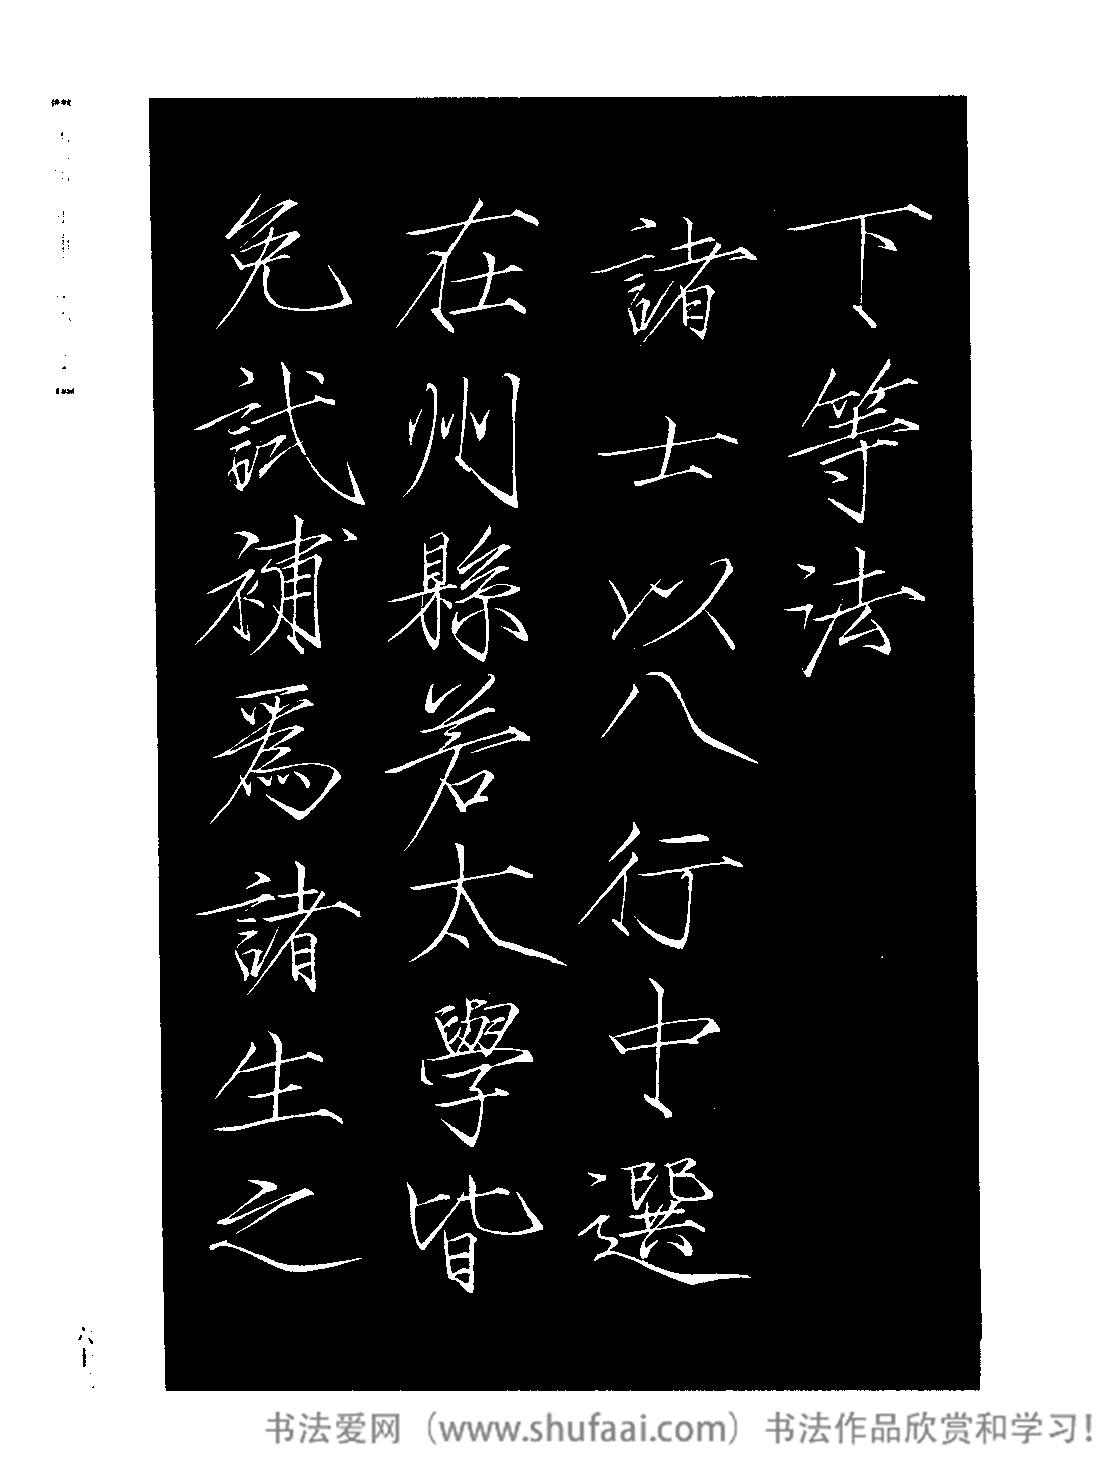 下等法
諸士以八行中選
在州縣若太學皆
免試補為諸生之
六十
书法爱网（www.shufaai.com）书法作品欣赏和学习！